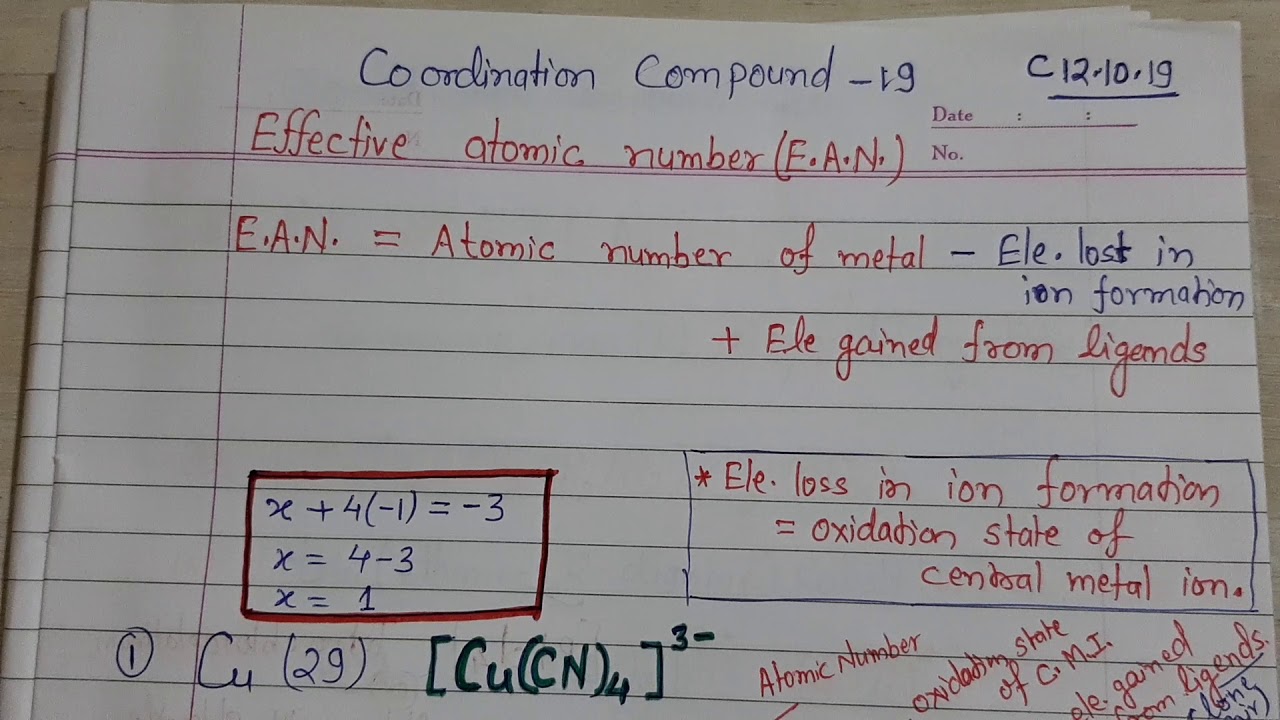 Coordination Compound - 19
C 12.10.19
Date : :
No.
Effective atomic number (E.A.N.)
E.A.N. = Atomic number of metal - Ele. lost in
ion formation
+ Ele gained from ligends
x + 4(-1) = -3
x = 4-3
x = 1
* Ele. loss in ion formation
= oxidation state of
central metal ion.
① Cu (29) [Cu(CN)4]3-
Atomic Number
oxidation state
of C.M.I.
gained
ligends.